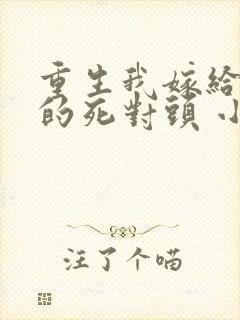 重生我嫁給
的死對頭 小
注了个喵